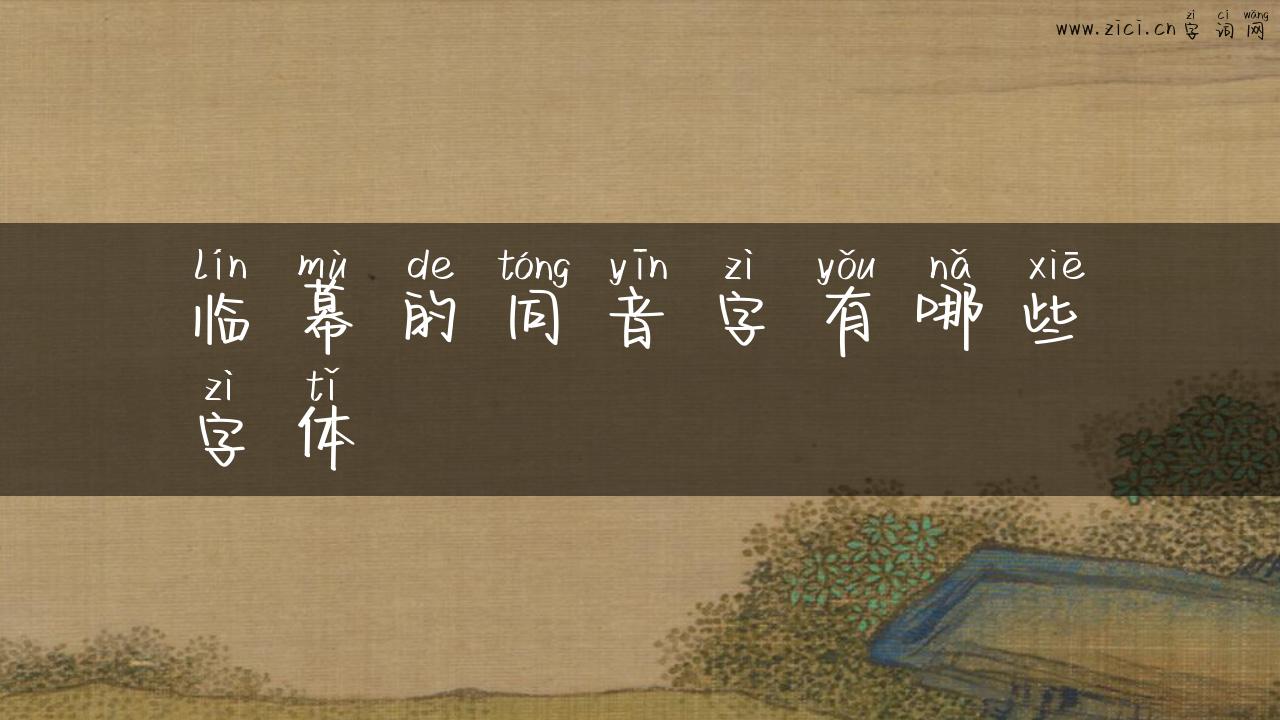 zì cí wǎng
www.zici.cn 字词网
lín mù de tóng yīn zì yǒu nǎ xiē
临幕的同音字有哪些
zì tǐ
字体